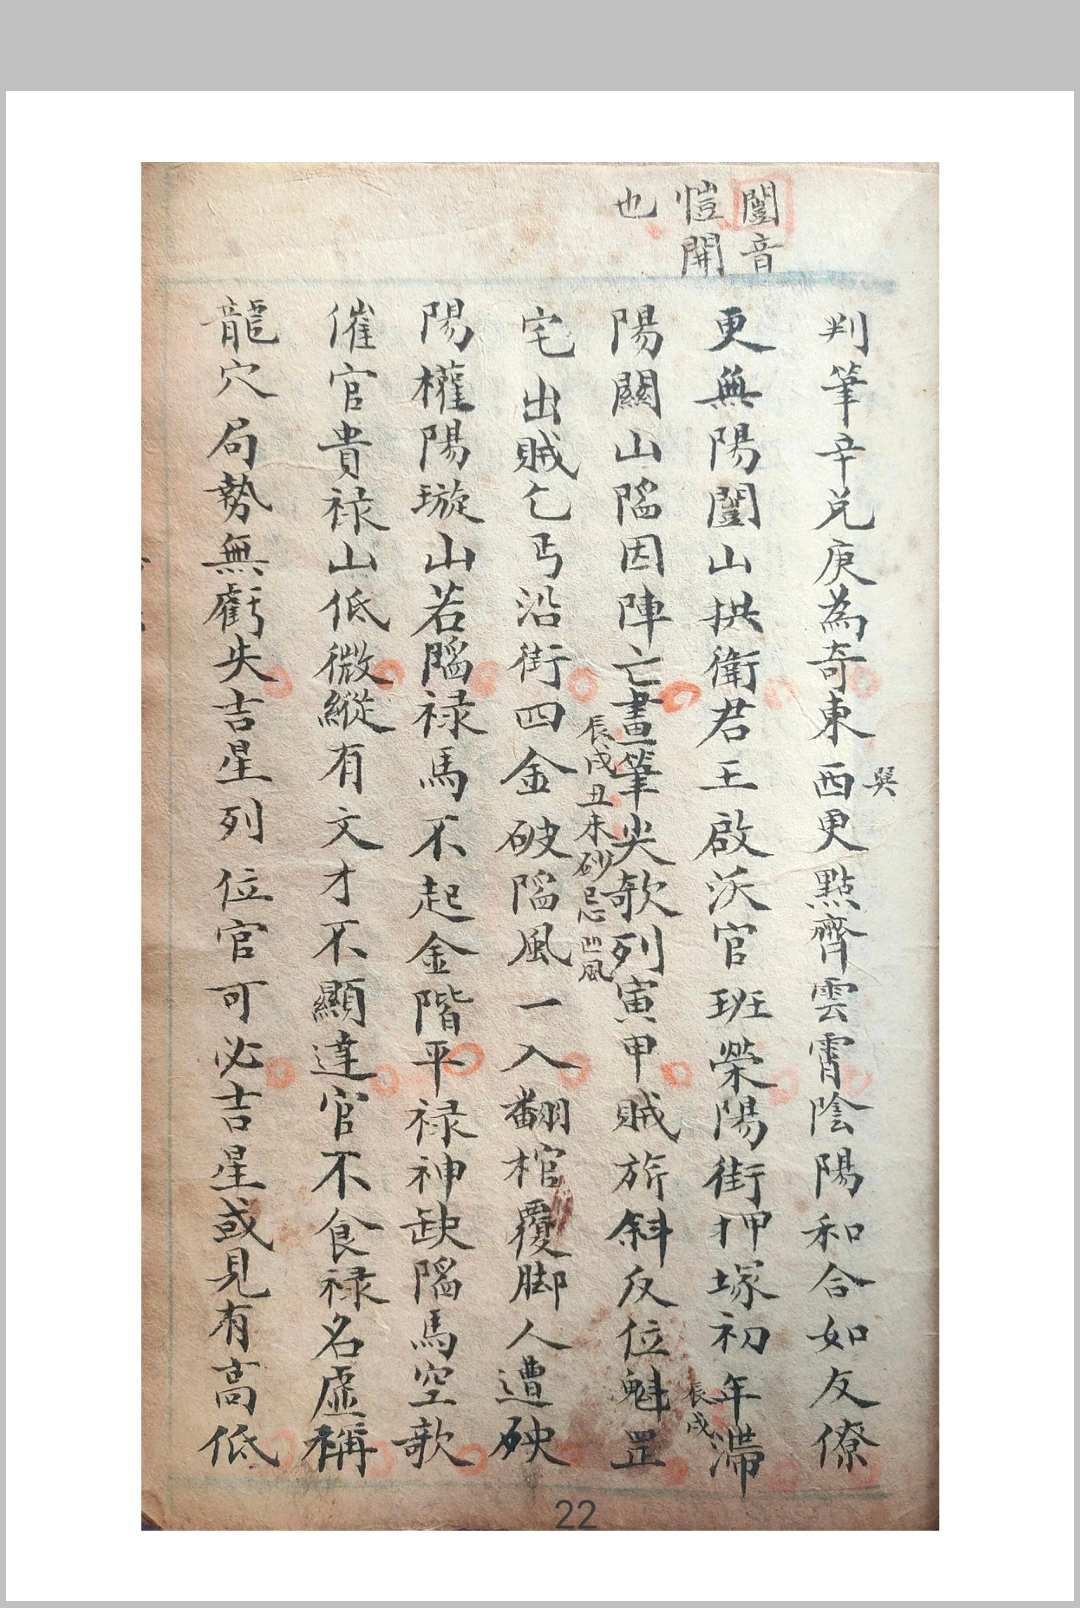 闓音
愷開
也
判筆辛兌庚為奇東西更點齊雲霄陰陽和合如友僚
巽
更無陽闓山拱衛君王啟沃官班榮陽街押塚初年滯
辰戌
陽關山陷因陣亡畫筆尖欹列寅甲賊旂斜反位魁罡
辰戌丑未砂忌凹風
宅出賊乞丐沿街四金破陷風一入翻棺覆脚人遭殃
陽權陽璇山若陷祿馬不起金階平祿神缺陷馬空歆
催官貴祿山低微縱有文才不顯達官不食祿名虛稱
龍穴局勢無虧失吉星列位官可必吉星或見有高低
22